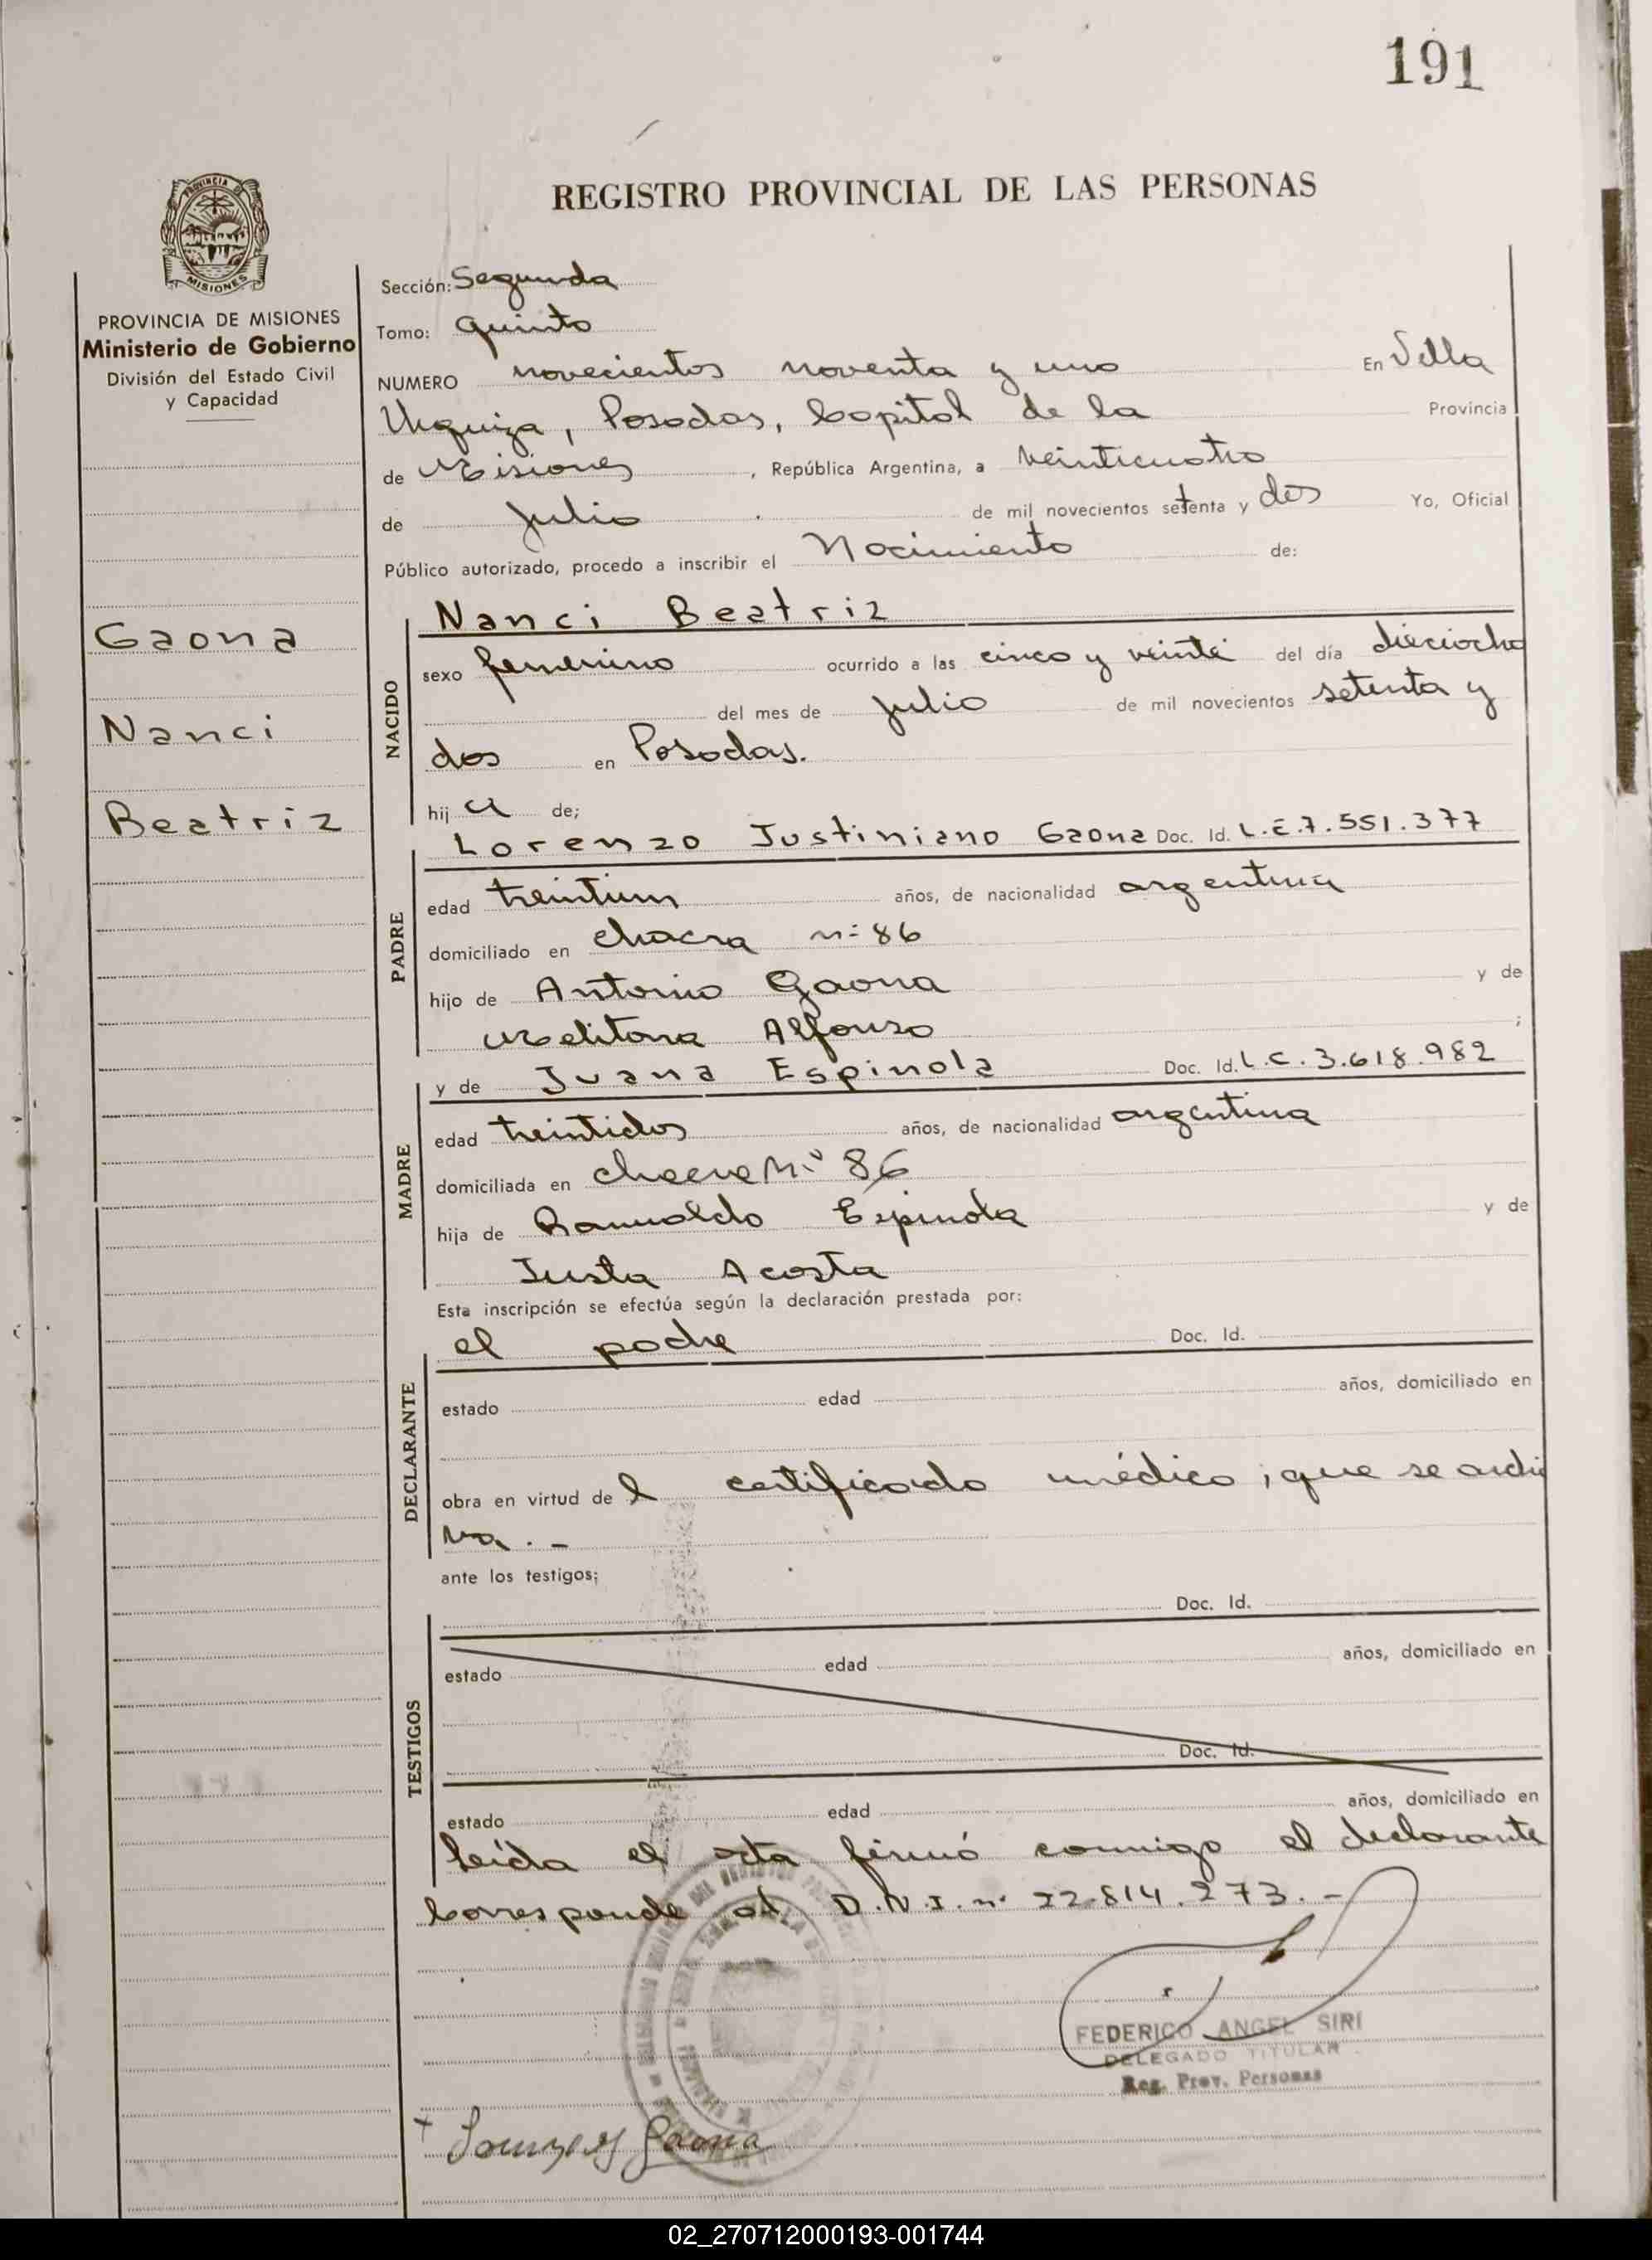 191
REGISTRO PROVINCIAL DE LAS PERSONAS
PROVINCIA DE
MISIONES
PROVINCIA DE MISIONES
Ministerio de Gobierno
División del Estado Civil
y Capacidad
Gaona
Nanci
Beatriz
Sección: Segunda
Tomo: quinto
NUMERO novecientos noventa y uno En Villa
Urquiza, Posadas, Capital de la Provincia
de Misiones, República Argentina, a veinticuatro
de Julio de mil novecientos setenta y dos Yo, Oficial
Público autorizado, procedo a inscribir el Nacimiento de:
NACIDO
Nanci Beatriz
sexo femenino ocurrido a las cinco y veinte del día dieciocho
del mes de julio de mil novecientos setenta y
dos en Posadas.
hija de;
PADRE
Lorenzo Justiniano Gaona Doc. Id. L.E.7.551.377
edad treintium años, de nacionalidad argentina
domiciliado en chacra nº 86
hijo de Antonio Gaona y de
Melitona Alfonso ;
MADRE
y de Juana Espinola Doc. Id. L.C.3.618.982
edad treintidos años, de nacionalidad argentina
domiciliada en chacra Nº 86
hija de Romualdo Espinola y de
Justa Acosta
Esta inscripción se efectúa según la declaración prestada por:
DECLARANTE
el padre Doc. Id.
estado edad años, domiciliado en
obra en virtud del certificado médico; que se archi
va. -
ante los testigos;
TESTIGOS
Doc. Id.
estado edad años, domiciliado en
Doc. Id.
estado edad años, domiciliado en
leída el acta firmó conmigo el declarante
Corresponde al D.N.I. nº 22.814.273. -
FEDERICO ANGEL SIRI
DELEGADO TITULAR
Reg. Prov. Personas
Gaona
02_270712000193-001744